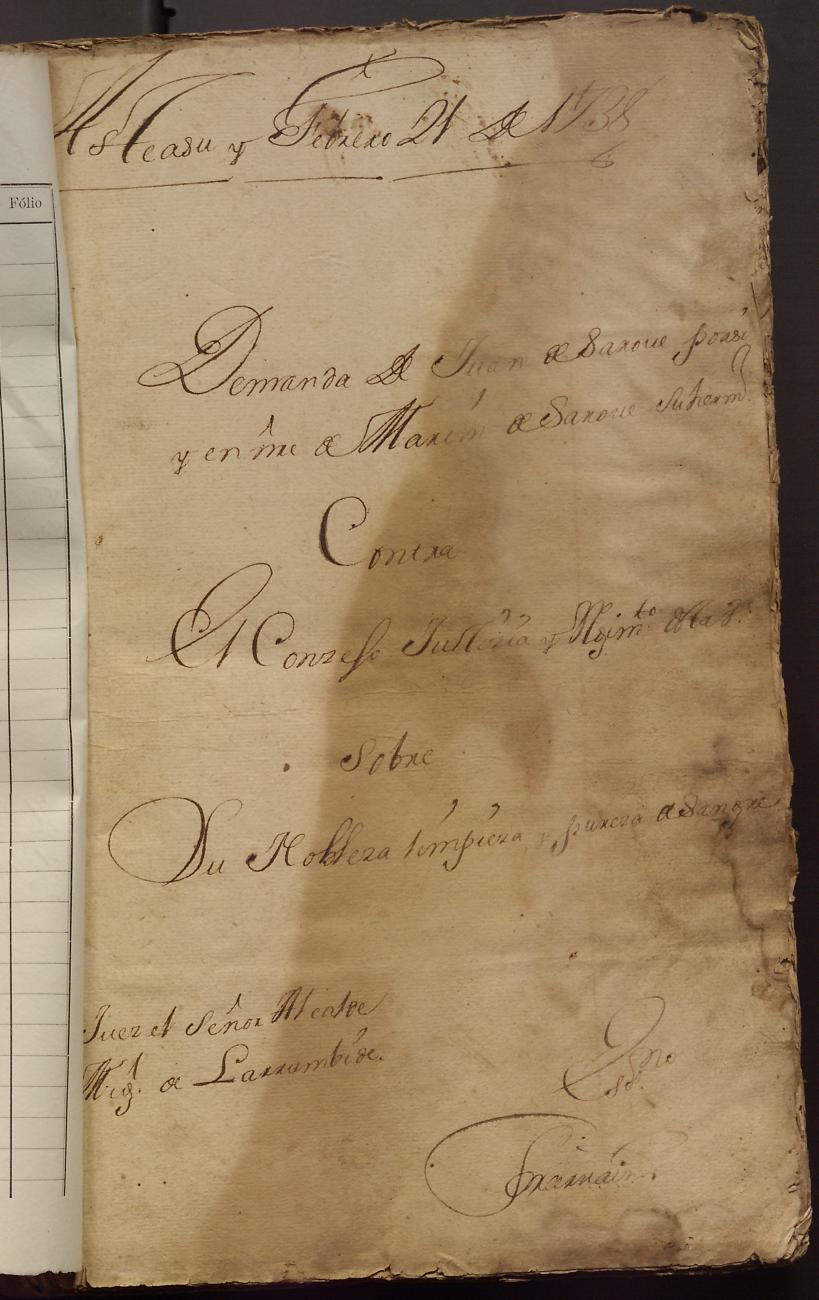 Fólio
Asteasu y Febrero 21 de 1738
Demanda de Juan de Saroue por si
y en nre de Martin de Saroue su herm.º
Contra
El Conzejo Justizia y Regim.to de la V.ª
Sobre
Su Nobleza limpieza y pureza de Sangre
Juez el Señor Alcalde
Mig.l de Larrumbide.
Ess.no